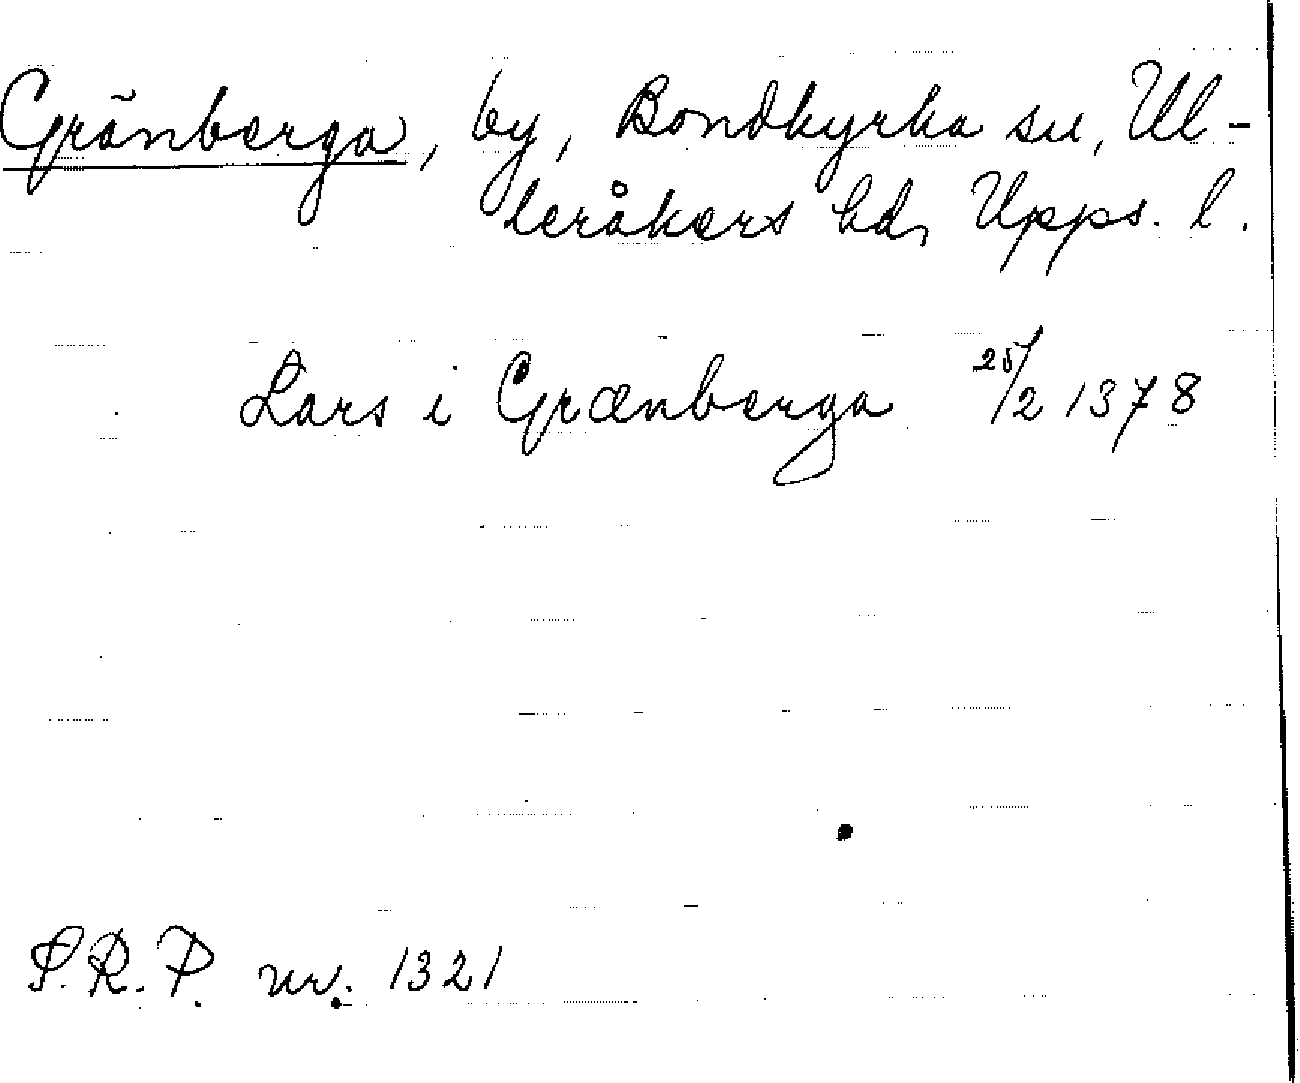 Gränberga, by, Bondkyrka sn, Ul-
leråkers hd, Upps. l.
Lars i Grænberga 25/2 1378
S.R.P. nr. 1321